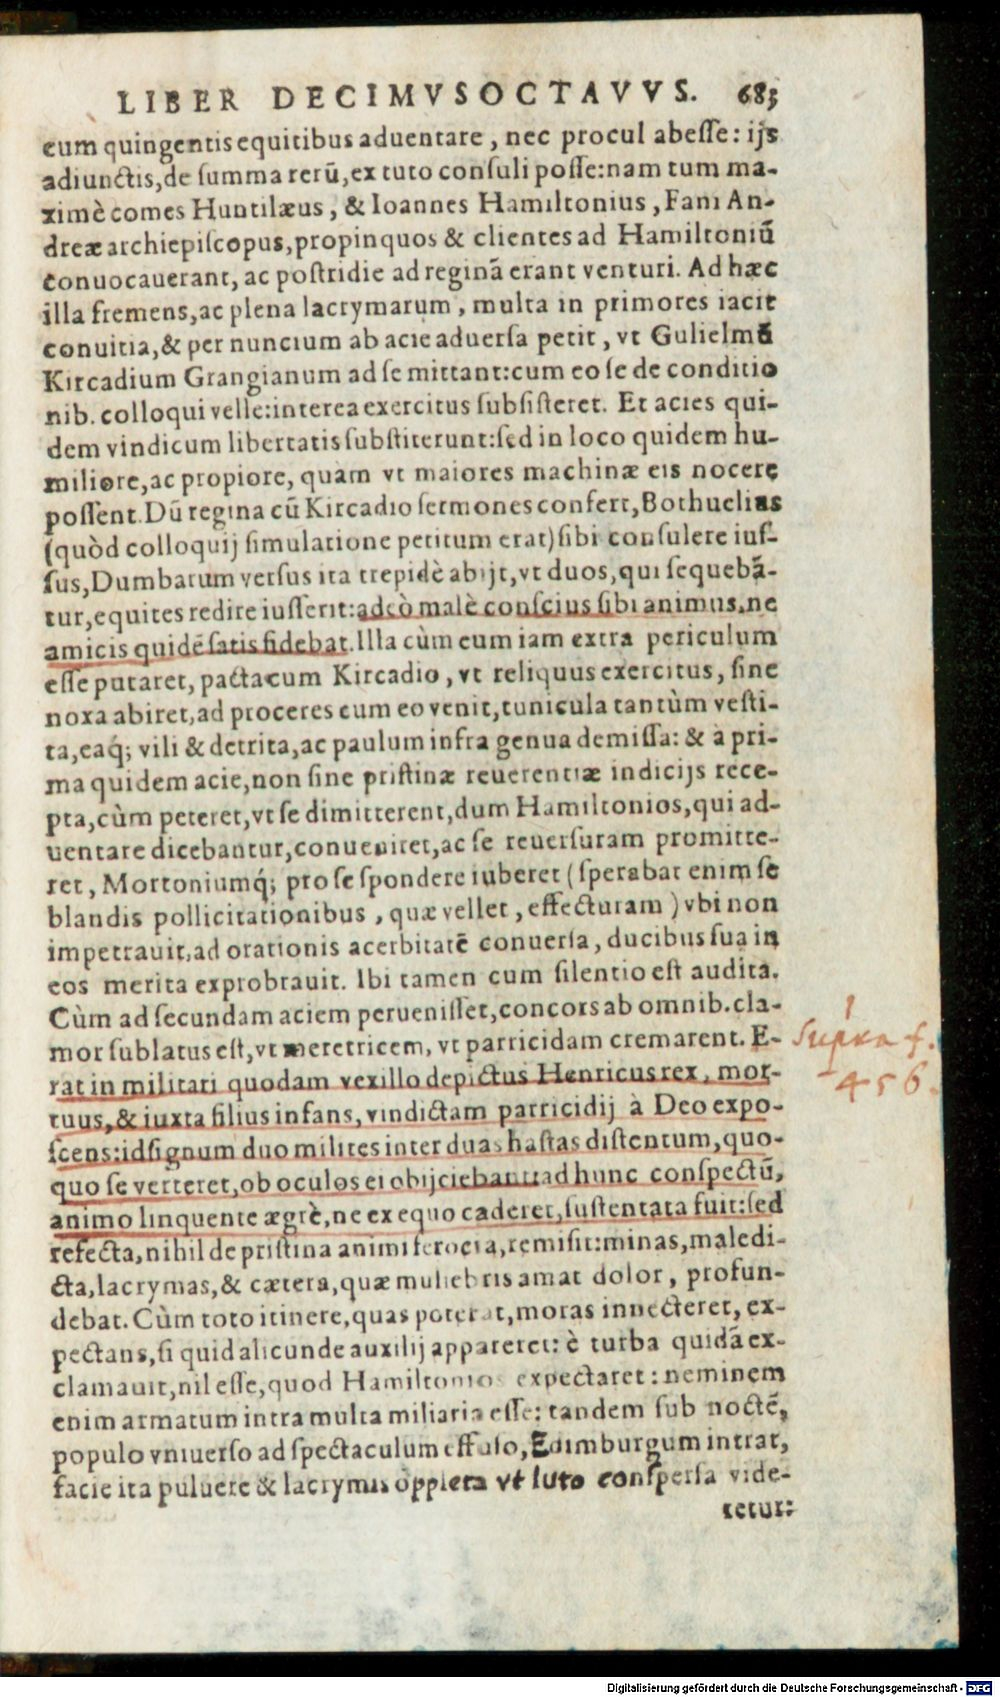 LIBER DECIMVSOCTAVVS. 683
cum quingentis equitibus aduentare, nec procul abesse: ijs
adiunctis, de summa rerũ, ex tuto consuli posse: nam tum ma-
ximè comes Huntilæus, & Ioannes Hamiltonius, Fani An-
dreæ archiepiscopus, propinquos & clientes ad Hamiltoniũ
conuocauerant, ac postridie ad reginã erant venturi. Ad hæc
illa fremens, ac plena lacrymarum, multa in primores iacit
conuitia, & per nuncium ab acie aduersa petit, vt Gulielmũ
Kircadium Grangianum ad se mittant: cum eo se de conditio
nib. colloqui velle: interea exercitus subsisteret. Et acies qui-
dem vindicum libertatis substiterunt: sed in loco quidem hu-
miliore, ac propiore, quàm vt maiores machinæ eis nocere
possent. Dũ regina cũ Kircadio sermones confert, Bothuelius
(quòd colloquij simulatione petitum erat) sibi consulere ius-
sus, Dumbarum versus ita trepidè abijt, vt duos, qui sequebã-
tur, equites redire iusserit: adeò malè conscius sibi animus, ne
amicis quidẽ satis fidebat. Illa cùm eum iam extra periculum
esse putaret, pacta cum Kircadio, vt reliquus exercitus, sine
noxa abiret, ad proceres cum eo venit, tunicula tantùm vesti-
ta, eaq́; vili & detrita, ac paulum infra genua demissa: & à pri-
ma quidem acie, non sine pristinæ reuerentiæ indicijs rece-
pta, cùm peteret, vt se dimitterent, dum Hamiltonios, qui ad-
uentare dicebantur, conueniret, ac se reuersuram promitte-
ret, Mortoniumq́; pro se spondere iuberet (sperabat enim se
blandis pollicitationibus, quæ vellet, effecturam) vbi non
impetrauit, ad orationis acerbitatẽ conuersa, ducibus sua in
eos merita exprobrauit. Ibi tamen cum silentio est audita.
Cùm ad secundam aciem peruenisset, concors ab omnib. cla-
mor sublatus est, vt meretricem, vt parricidam cremarent. E-
rat in militari quodam vexillo depictus Henricus rex, mor-
tuus, & iuxta filius infans, vindictam parricidij à Deo expo-
scens: id signum duo milites inter duas hastas distentum, quo-
quo se verteret, ob oculos ei obijciebant: ad hunc conspectũ,
animo linquente ægrè, ne ex equo caderet, sustentata fuit: sed
refecta, nihil de pristina animi ferocia, remisit: minas, maledi-
cta, lacrymas, & cætera, quæ muliebris amat dolor, profun-
debat. Cùm toto itinere, quas poterat, moras innecteret, ex-
pectans, si quid alicunde auxilij appareret: è turba quidã ex-
clamauit, nil esse, quod Hamiltonios expectaret: neminem
enim armatum intra multa miliaria esse: tandem sub noctẽ,
populo vniuerso ad spectaculum effuso, Edimburgum intrat,
facie ita puluere & lacrymis oppleta vt luto conspersa vide-
retur:
Supra f.
456.
Digitalisierung gefördert durch die Deutsche Forschungsgemeinschaft - DFG